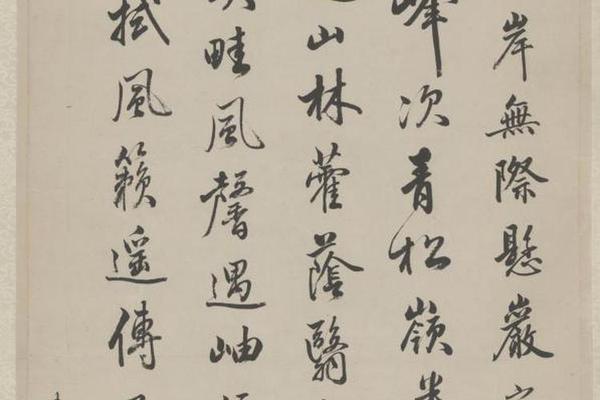 岸無際懸巖
峰次青松嶺
山林藿蔭翳
畦風馨遇岫
拭風籟遥傳